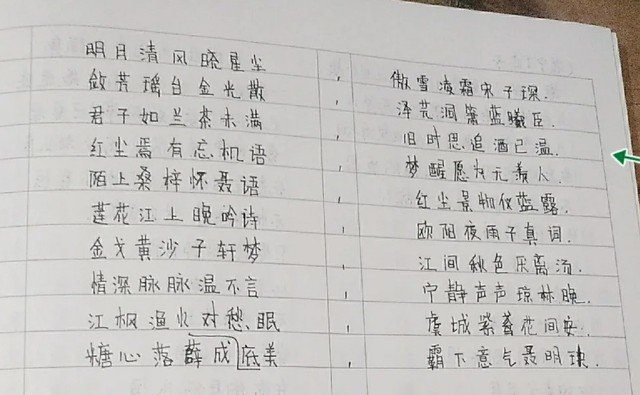 明月清风晓星尘，傲雪凌霜宋子琛.
敛芳瑶自金光散，泽芜涧箫蓝曦臣.
君子如兰茶未满，旧时思追酒已温.
红尘焉有忘机语，梦醒愿为无羡人.
陌上桑梓怀聂语，红尘景物仪蓝露.
莲花江上晚吟诗，欧阳夜雨子真词.
金戈黄沙子轩梦，江间秋色厌离汤.
情深脉脉温不言，宁静声声琼林晚.
江枫渔火对愁眠，虞城紫鸢花间安.
糖心落薛成底美，霸下意气聂明玦.